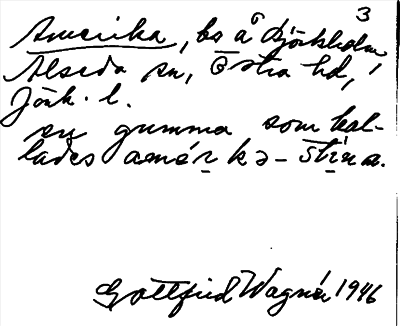 3
Amerika, bs å Björkholm
Alseda sn, Östra hd,
Jönk. l.
en gumma som kal-
lades amér kə-stina.
Gottfrid Wagnér 1946